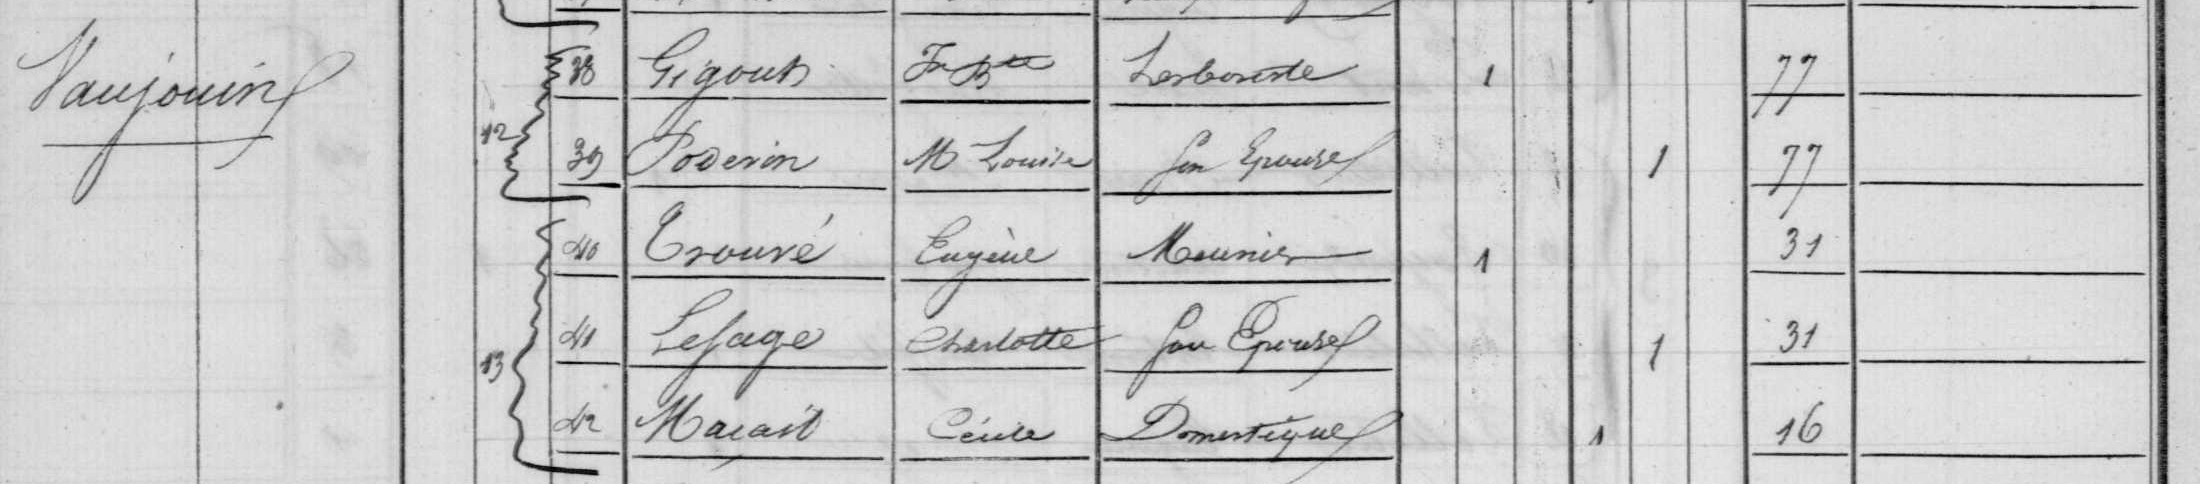 Vaujouin
12
38 Gigout Jn Btte 1 77
39 Poderin M Louise Son Epouse 1 77
13
40 Trouvé Eugène Meunier 1 31
41 Lesage Charlotte Son Epouse 1 31
42 Domestique 1 16